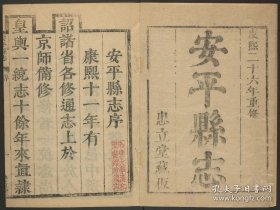 康熙二十六年重修
安平縣志
忠立堂藏板
安平縣志序
康熙十一年有
詔諸省各修通志上於
京師備修
皇輿一統志十餘年來直隸